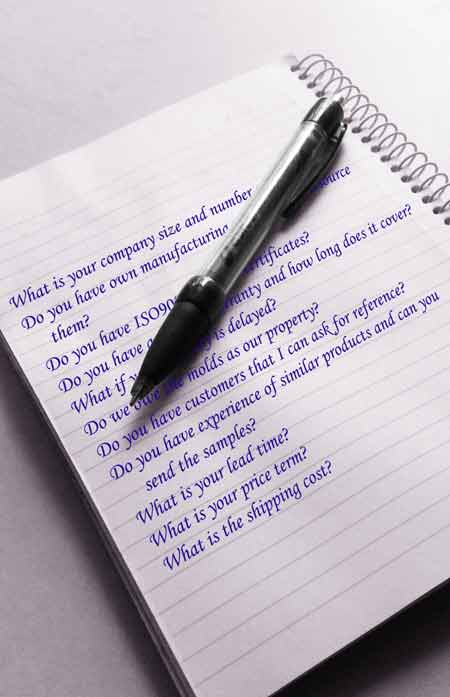 What is your company size and number source
Do you have own manufacturing
them?
Do you have ISO90 ertificates?
Do you have a rranty and how long does it cover?
What if y y is delayed?
Do we owe the molds as our property?
Do you have customers that I can ask for reference?
Do you have experience of similar products and can you
send the samples?
What is your lead time?
What is your price term?
What is the shipping cost?